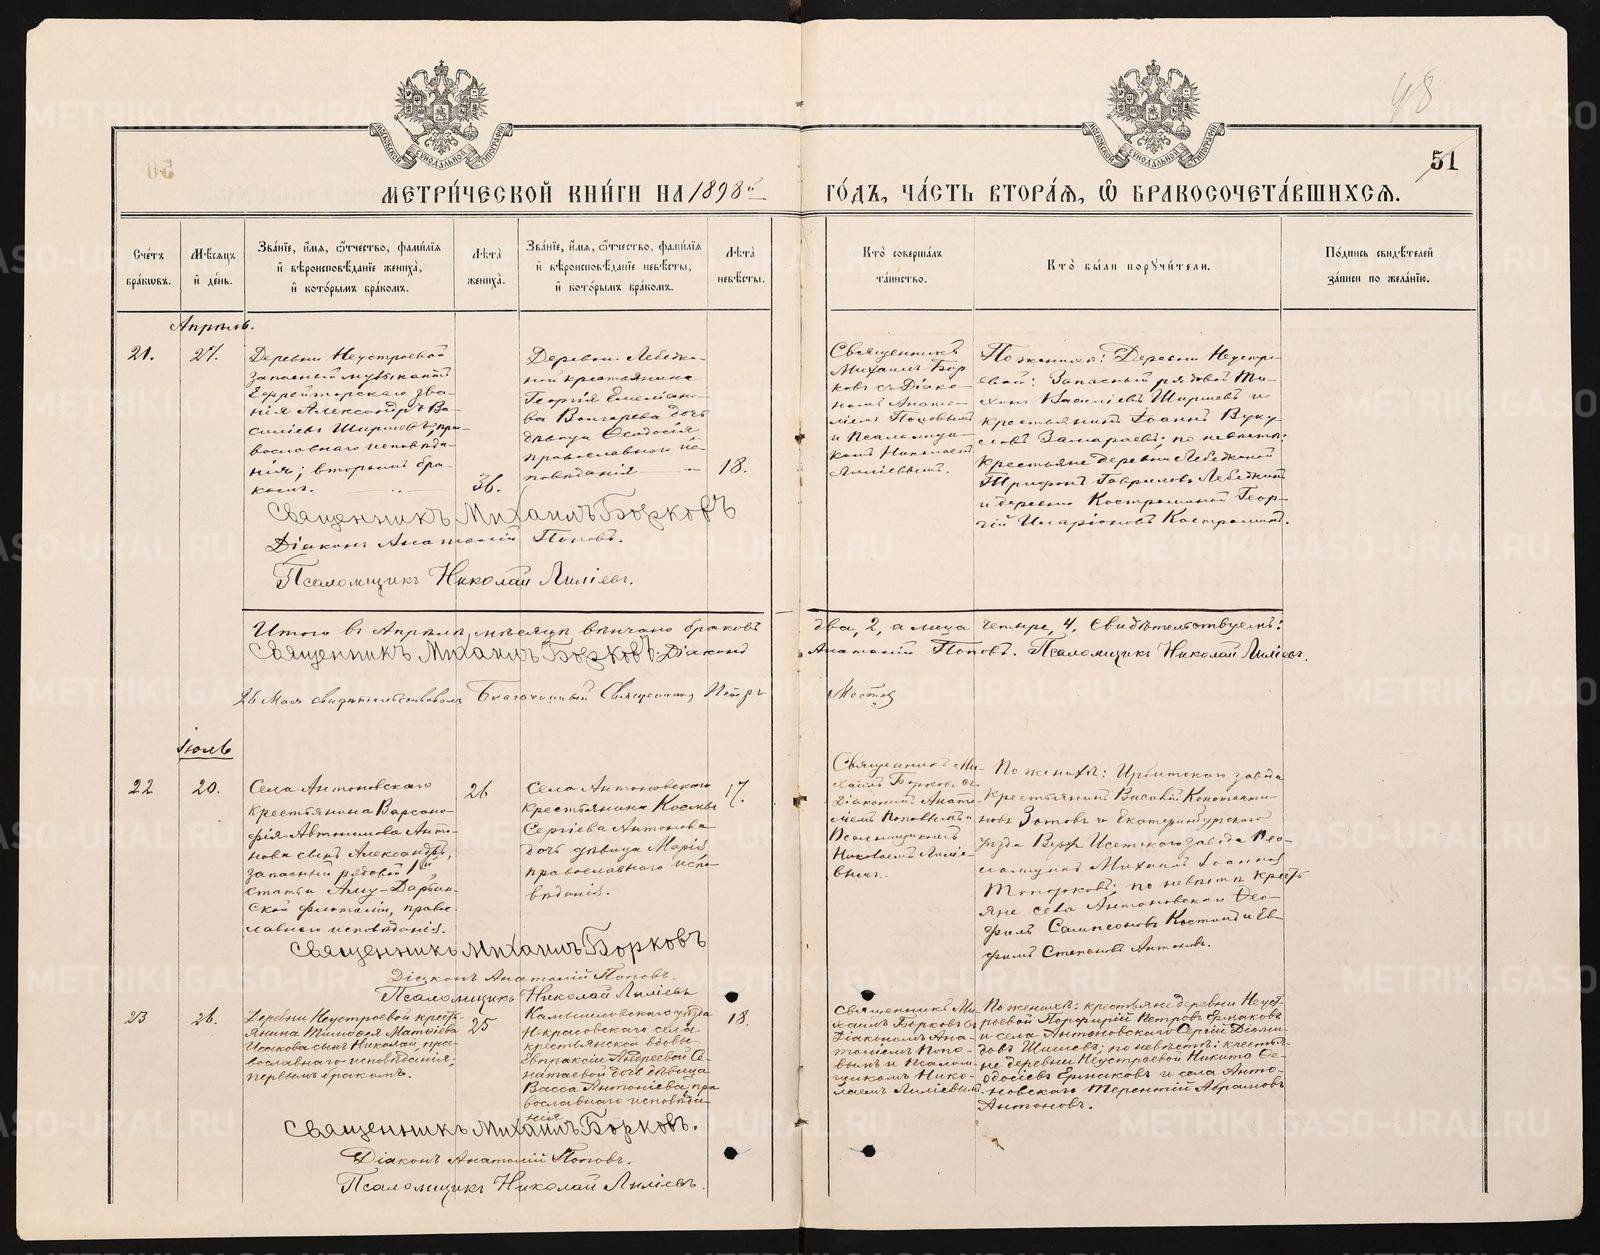 48
51
МЕТРИ́ЧЕСКОЙ КНИ́ГИ НА 1898й ГО́ДЪ, ЧА́СТЬ ВТОРА́Я, Ѽ БРАКОСОЧЕТА́ВШИХСЯ.
Сче́тъ бра́ковъ.
Мѣ́сяцъ и҆ де́нь.
Зва́нїе, и҆́мя, ѻ҆́тчество, фами́лїя и҆ вѣроисповѣ́данїе жениха̀, и҆ кото́рымъ бра́комъ.
Лѣ́та жениха̀.
Зва́нїе, и҆́мя, ѻ҆́тчество, фами́лїя и҆ вѣроисповѣ́данїе невѣ́сты, и҆ кото́рымъ бра́комъ.
Лѣ́та невѣ́сты.
Кто̀ соверша́лъ та́инство.
Кто̀ бы́ли поручи́тели.
По́дпись свидѣ́телей за́писи по жела́нїю.
Апрѣль.
21.
27.
Деревни Неустроевой
запасный музыкантъ
Ефрейторскаго зва-
нія Александръ Ва-
сильевъ Ширшевъ, пра-
вославнаго исповѣда-
нія; вторымъ бра-
комъ.
36.
Деревни Лебедки-
ной крестьянина
Георгія Емеліано-
ва Вонгарева дочь
дѣвица Ѳеодосія
православнаго ис-
повѣданія
18.
Священникъ
Михаилъ Бор
ковъ съ Діако-
номъ Анато-
ліемъ Поповымъ
и Псаломщи-
комъ Николаемъ
Лиліевымъ.
По женихѣ: Деревни Неустро-
евой: Запасный рядовой Ти-
хонъ Василіевъ Ширшевъ и
крестьянинъ Іоаннъ Вуку-
ловъ Замараевъ; по невѣстѣ:
крестьяне деревни Лебедкиной
Трифонъ Гавриловъ Лебедкинъ
и деревни Костроминой Геор-
гій Иларіоновъ Костроминъ.
Священникъ Михаилъ Борковъ
Діаконъ Анатолій Поповъ.
Псаломщикъ Николай Лиліевъ.
Итого въ Апрѣлѣ мѣсяцѣ вѣнчано браковъ два, 2, а лица четыре, 4, Свидѣтельствуемъ:
Священникъ Михаилъ Борковъ. Діаконъ Анатолій Поповъ. Псаломщикъ Николай Лиліевъ.
26 Мая свидѣтельствовалъ Благочинный Священникъ Петръ
Іюль
22
20.
Села Антоновскаго
крестьянина Варсоно-
фія Автономова Анто-
нова сынъ Александръ,
запасный рядовой 1й
статьи Аму-Дарьин-
ской флотиліи, право-
славнаго исповѣданія.
26
Села Антоновскаго
крестьянина Космы
Сергіева Антонова
дочь дѣвица Марія
православнаго испо-
вѣданія.
17.
Священникъ Ми-
хаилъ Борковъ съ
Діакономъ Анато-
ліемъ Поповымъ и
Псаломщикомъ
Николаемъ Лиліе-
вымъ.
По женихѣ: Ирбитскаго завода
крестьянинъ Василій Константи-
новъ Зотовъ и Екатеринбургскаго
уѣзда Верх-Исетскаго завода Пса-
ломщикъ Михаилъ Іоанновъ
Топорковъ; по невѣстѣ кресть
яне села Антоновскаго Ѳео-
филъ Сампсоновъ и Ев-
фимъ Степановъ Антоновъ.
Священникъ Михаилъ Борковъ
Діаконъ Анатолій Поповъ.
Псаломщикъ Николай Лиліевъ
23
26.
Деревни Неустроевой кресть
янина Тимоѳея Матѳіева
Исакова сынъ Николай, пра-
вославнаго исповѣданія;
первымъ бракомъ.
25
Камышловскаго уѣзда
Некрасовскаго села
крестьянской вдовы
Евпраксіи Андреевой Се-
натаевой дочь дѣвица
Васса Антоніева, пра
вославнаго исповѣда-
нія
18.
Священникъ Ми-
хаилъ Борковъ съ
Діакономъ Ана-
толіемъ Попо-
вымъ и Псалом-
щикомъ Нико-
лаемъ Лиліевымъ
По женихѣ: крестьяне деревни Неуст-
роевой Порфирій Петровъ Ермаковъ
и села Антоновскаго Сергій Діоми-
довъ Шишовъ; по невѣстѣ: крестья-
не деревни Неустроевой Никита Ѳе-
одосіевъ Ермаковъ и села Анто-
новскаго Терентій Абрамовъ
Антоновъ.
Священникъ Михаилъ Борковъ.
Діаконъ Анатолій Поповъ.
Псаломщикъ Николай Лиліевъ.
METRIKI.GASO-URAL.RU